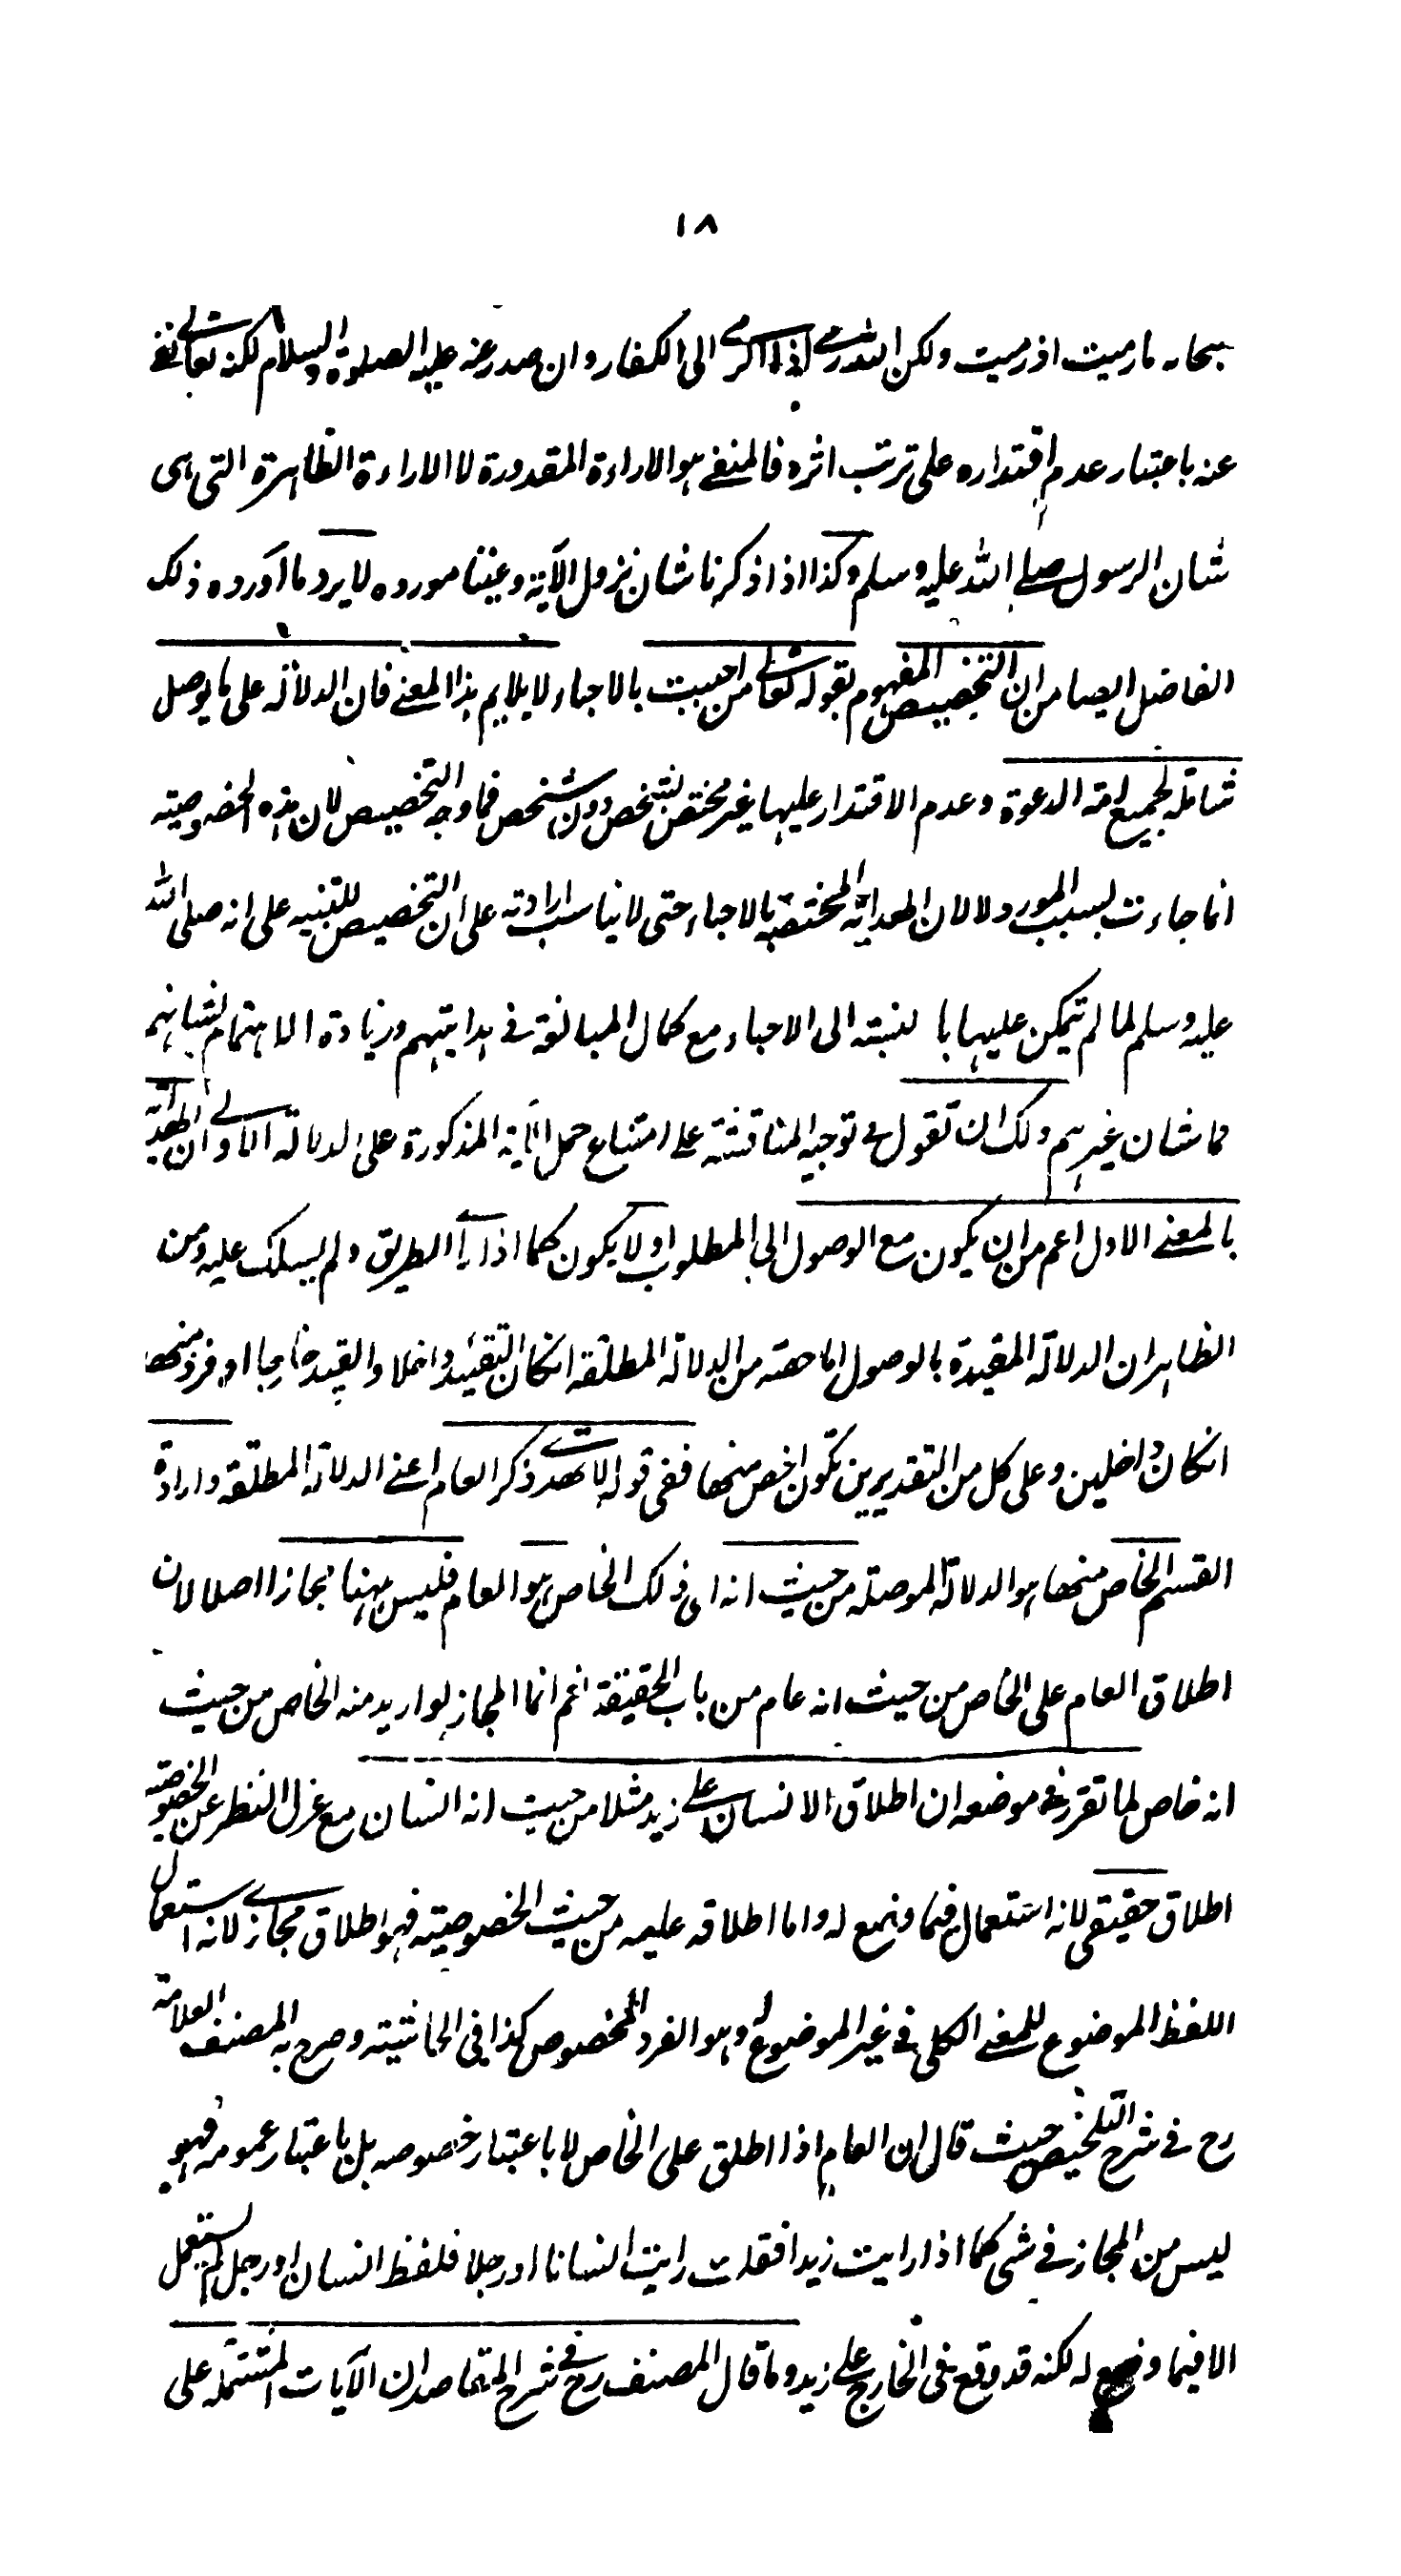 ١٨
سبحانه ما رميت اذ رميت ولكن الله رمى اذ الرمى الى الكفار وان صدر عنه عليه الصلوة والسلام لكنه تعالى نفى
عنه باعتبار عدم اقتداره على ترتب اثره فالمنفى هو الاراءة المقدورة لا الاراءة الظاهرة التى هى
شان الرسول صلى الله عليه وسلم وكذا اذا ذكرنا شان نزول الآية وعينا مورده لا يرد ما آورده ذلك
الفاضل العصام من ان التخصيص المفهوم بقوله تعالى من احببت بالاحباء لا يلايم هذا المعنى فان الدلالة على ما يوصل
شاملة لجميع امة الدعوة وعدم الاقتدار عليها غير مختص بشخص دون شخص فما وجه التخصيص لان هذه الخصوصية
انما جاءت بسبب المورد لا لان الهداية المختصة بالاحباء حتى لا يناسب ارادته على ان التخصيص للتنبيه على انه صلى الله
عليه وسلم لما لم يتمكن عليها با لنسبته الى الاحباء مع كمال المبالغة فى هدايتهم وزيادة الاهتمام بشانهم
فما شان غيرهم ولك ان تقول فى توجيه المناقشة على امتناع حمل الآية المذكورة على الدلالة الاولى ان الهداية
بالمعنى الاول اعم من ان يكون مع الوصول الى المطلوب او لا يكون كما اذا راى الطريق ولم يسلك عليه ومن
الظاهر ان الدلالة المقيدة بالوصول اما حصة من الدلالة المطلقة انكان التقييد داخلا والقيد خارجا او فرد منها
انكان داخلين وعلى كل من التقديرين تكون اخص منها ففى قوله لا تهدى ذكر العام اعنى الدلالة المطلقة وارادة
القسم الخاص منها هو الدلالة الموصلة من حيث انه اى ذلك الخاص هو العام فليس ههنا مجازا اصلا لان
اطلاق العام على الخاص من حيث انه عام من باب الحقيقة نعم انما المجاز لو اريد منه الخاص من حيث
انه خاص لما تقرر فى موضعه ان اطلاق الانسان على زيد مثلا من حيث انه انسان مع عزل النظر عن الخصوصية
اطلاق حقيقى لانه استعمال فيما وضع له واما اطلاقه عليه من حيث الخصوصية فهو اطلاق مجازى لانه استعمال
اللفظ الموضوع للمعنى الكلى فى غير الموضوع له وهو الفرد المخصوص كذا فى الحاشية وصرح به المصنف العلامة
رح فى شرح التلخيص حيث قال ان العام اذا اطلق على الخاص لا باعتبار خصوصه بل باعتبار عمومه فهو
ليس من المجاز فى شى كما اذا رايت زيدا فقلت رايت انسانا او رجلا فلفظ انسان او رجل لم يستعمل
الا فيما وضع له لكنه قد وقع فى الخارج على زيد وما قال المصنف رح فى شرح المقاصد ان الآيات المشتملة على